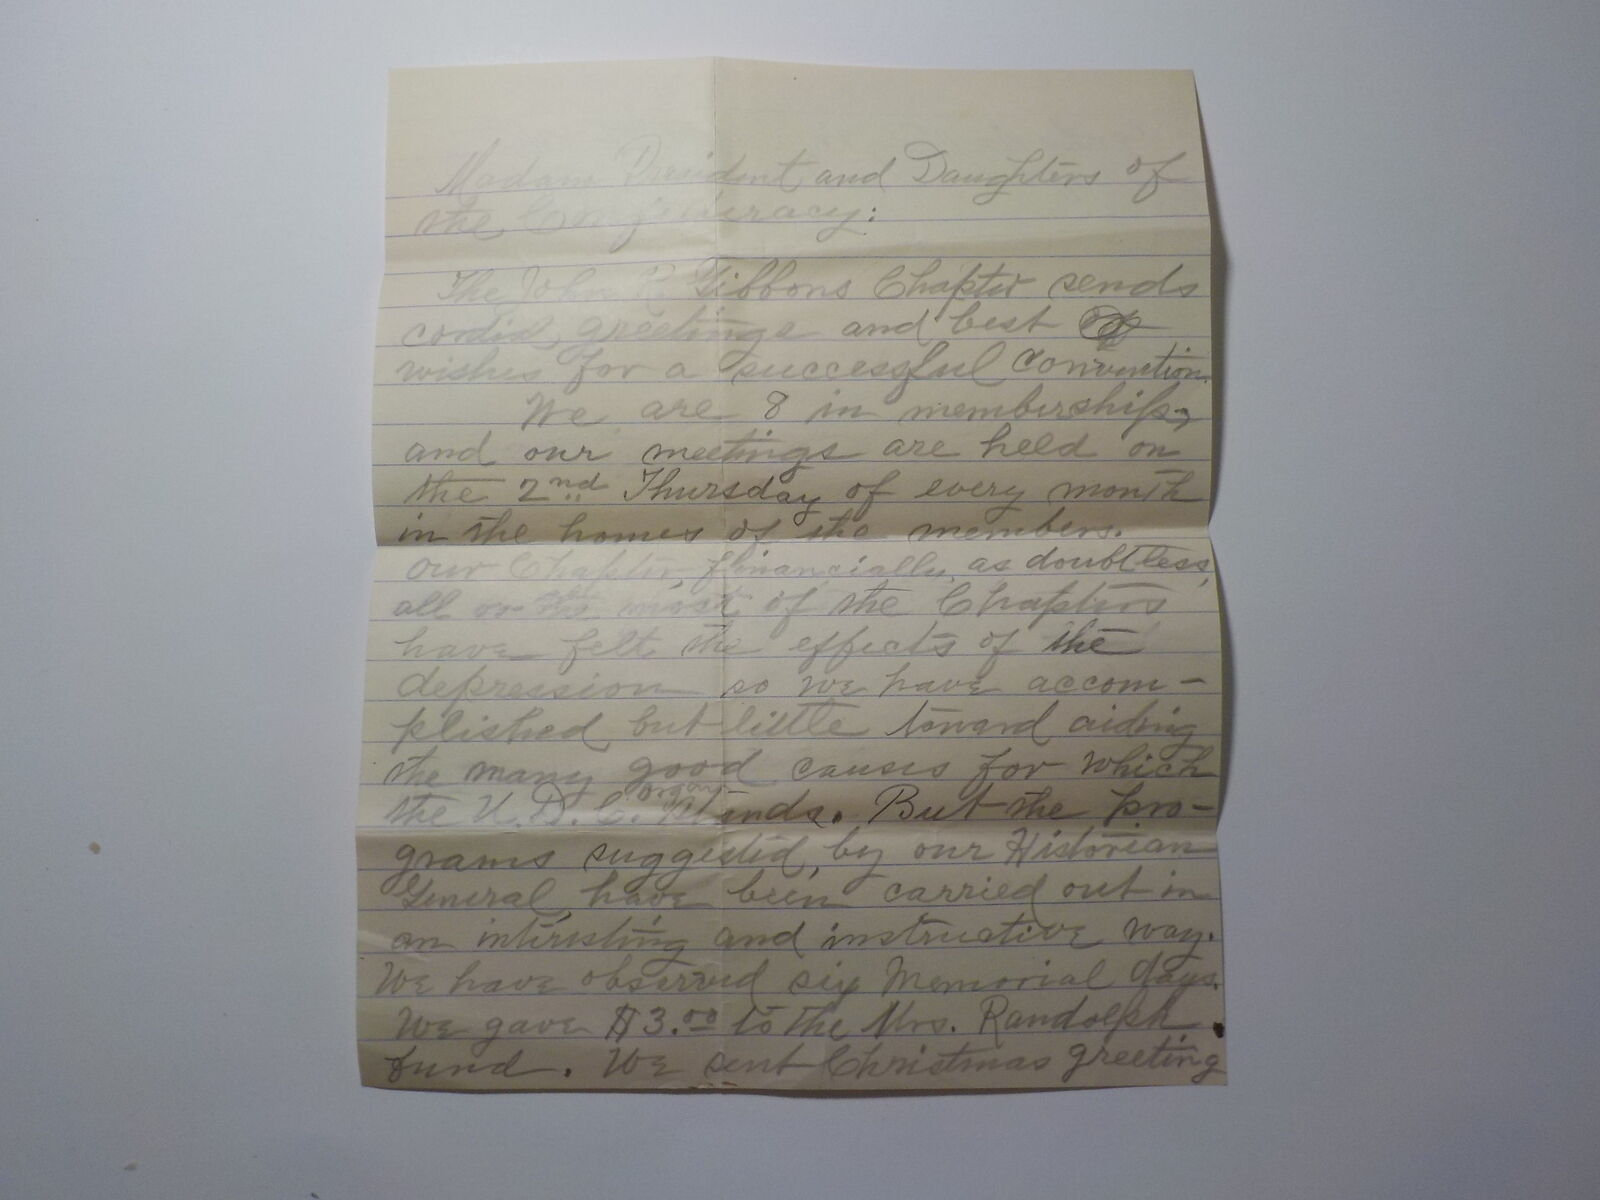 Madam President and Daughters of
the Confederacy:
The John R. Gibbons Chapter sends
cordial greetings and best
wishes for a successful convention.
We are 8 in membership,
and our meetings are held on
the 2nd Thursday of every month
in the homes of the members.
Our Chapter, financially, as doubtless,
all or the most of the Chapters
have felt the effects of the
depression so we have accom-
plished but little toward aiding
the many good causes for which
the U.D.C. stands. But the pro-
grams suggested by our Historian
General, have been carried out in
an interesting and instructive way.
We have observed six Memorial days.
We gave $3.00 to the Mrs. Randolph
fund. We sent Christmas greeting